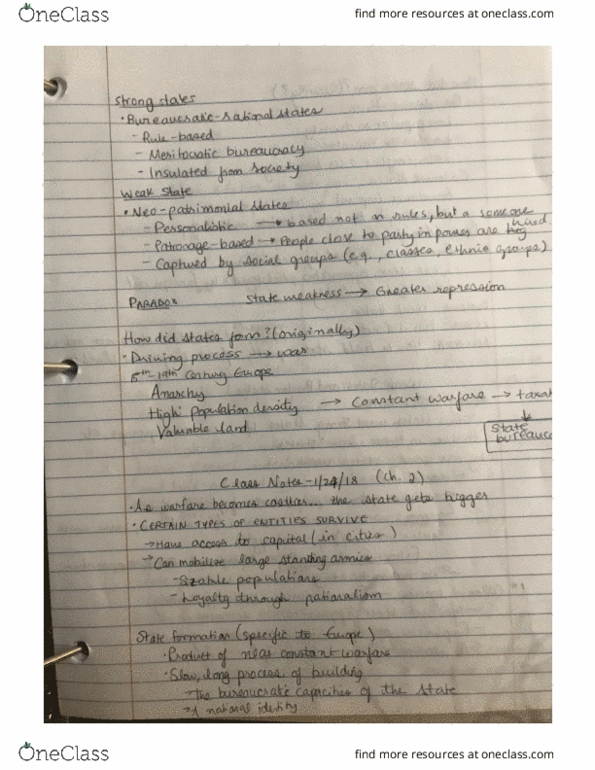 OneClass
find more resources at oneclass.com
Strong states
• Bureaucratic-rational states
- Rule-based
- Meritocratic bureaucracy
- Insulated from society
Weak State
• Neo-patrimonial states
- Personalistic → based not on rules, but a someone
- Patronage-based → People close to party in power are hired
- Captured by social groups (e.g., classes, ethnic groups)
PARADOX State weakness → Greater repression
How did states form? (originally)
• Driving process → war
19th Century Europe
Anarchy
High population density → Constant warfare →
Valuable land
State
Class Notes - 1/24/18 (Ch. 2)
• As warfare becomes costlier... the state gets bigger
• CERTAIN TYPES OF ENTITIES SURVIVE
→ Have access to capital (in cities)
→ Can mobilize large standing armies
- Sizable populations
- Loyalty through nationalism
State formation (specific to Europe)
• Product of near constant warfare
• Slow, long process of building
→ The bureaucratic capacities of the state
→ A national identity
OneClass
find more resources at oneclass.com